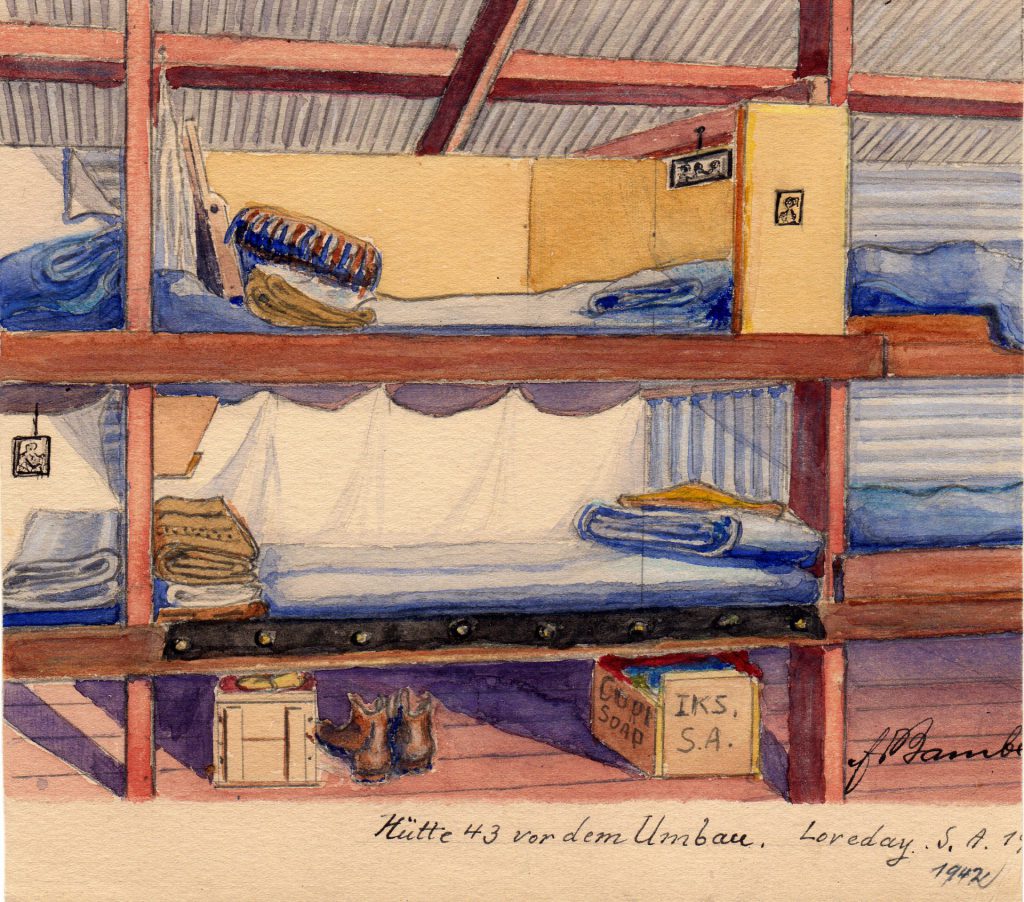 SOAP
IKS.
S.A.
Hütte 43 vor dem Umbau. Loveday. S. A.
1942